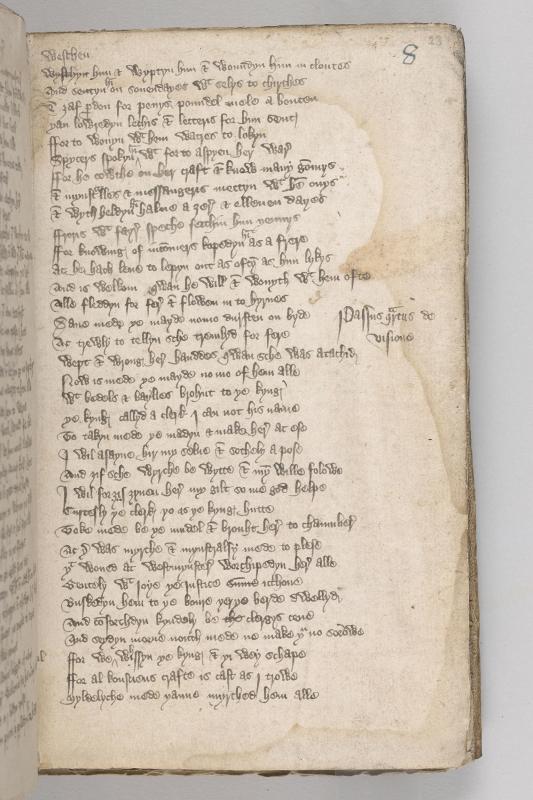 8 23
weschen
wysshyn hym & wyptyn hym & wonndyn hym in cloutes
And sentyn hym on sonendayes wt selys to chirches
& ȝaf pardon for penys poundel mele a bouten
yan lowredyn lechis & letteris for hym sent
ffor to wonyn wt hem watres to lokyn
Spycers spokyn wt hym for to aspyen her war
ffor he cowthe on her craft & know many gomys
& mynstrelles & messangeris mettyn wt hym onys
& wyth heldyn hym halue a ȝer & elleuen dayes
ffreris wt fayr speche fetchin hym yennys
ffor knowing of comeres kopedyn hym as a frere
Ac he hach leue to lepyn out as ofty as hym lykys
And is wellcom qwan he will & wonyth wt hem ofte
Alle fleddyn for fer & flowen in to hyrnes
Saue mede ye mayde nomo dursten on byde
Ac trewly to tellyn sche tremlyd for fere
wept & wrong her handdes qwan sche was atachid
Passus quartus de
visione
Now is mede ye mayde no mo of hem alle
wt bedels & baylies brohut to ye kyng
ye kyng callyd a clerk I can not his name
To takyn mede ye madyn & make her at ese
I wil asayne hir my selue & sothely a pose
And ȝif sche wyrche be wytte & my wille folowe
I wil forȝif ȝyuen her my gilt so me god helpe
Curtesly ye clerk yo as ye kyng hutte
Toke mede be ye mydel & brouht her to chaumber
Ac yer was myrche & mynstralsy mede to plese
yt woned at westmynster worchipedyn her alle
Gentely wt ioye ye iustice summe
Buskedyn hem to ye boure yer ye berde dwellyd
And comforthedyn kyndely be clergys leue
And seydyn morne nouth mede ne make yu no sorowe
ffor we wil wissyn ye kyng & yi wey schape
ffor al konsciens crafte is cast as I trowe
Myldelyche mede yanne myrthed hem alle